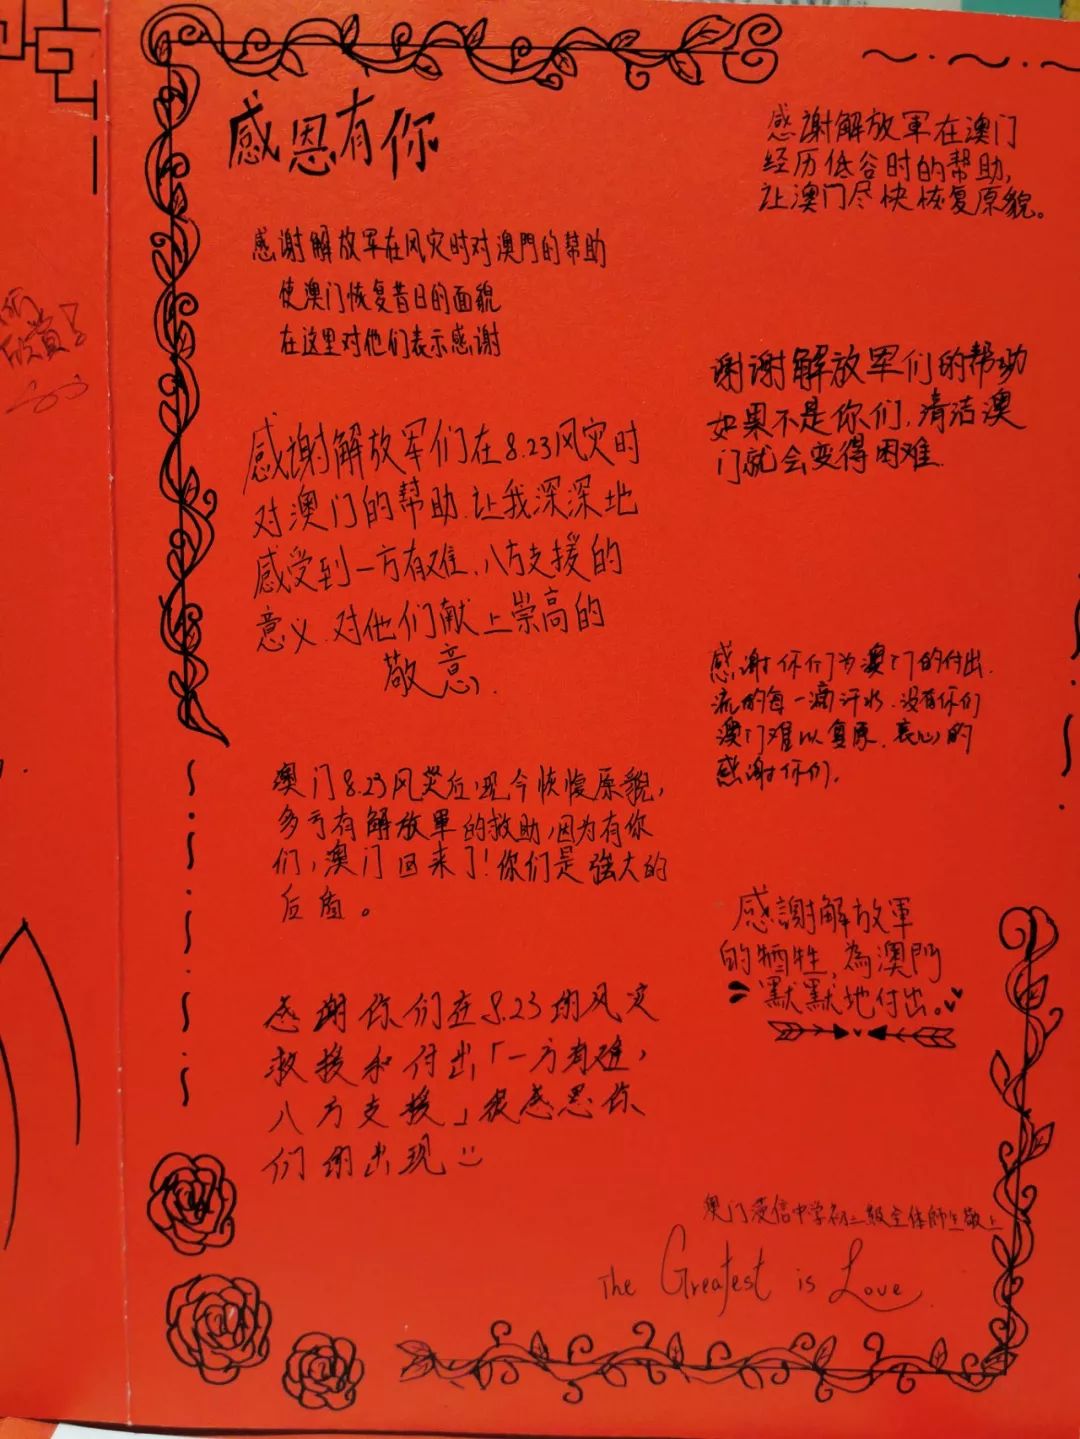 感恩有你
感谢解放军在风灾时对澳門的帮助
使澳门恢复昔日的面貌
在这里对他们表示感谢
感谢解放军们在8.23风灾时
对澳门的帮助.让我深深地
感受到一方有难、八方支援的
意义.对他们献上崇高的
敬意.
澳门8.23风灾后,现今恢復原貌,
多亏有解放軍的救助,因为有你
们,澳门回来了!你们是強大的
后盾。
感谢你们在8.23的风灾
救援和付出「一方有难,
八方支援」很感恩你
们的出现
感谢解放軍在澳门
经历低谷时的帮助,
让澳门尽快恢复原貌。
谢谢解放军们的帮助
如果不是你们,清洁澳
门就会变得困难.
感谢你们为澳门的付出.
流的每一滴汗水.没有你们
澳门难以复原.衷心的
感谢你们.
感謝解放軍
的牺牲,為澳門
默默地付出。
澳门浸信中学初二級全体師生敬上
The Greatest is Love
欣賞!